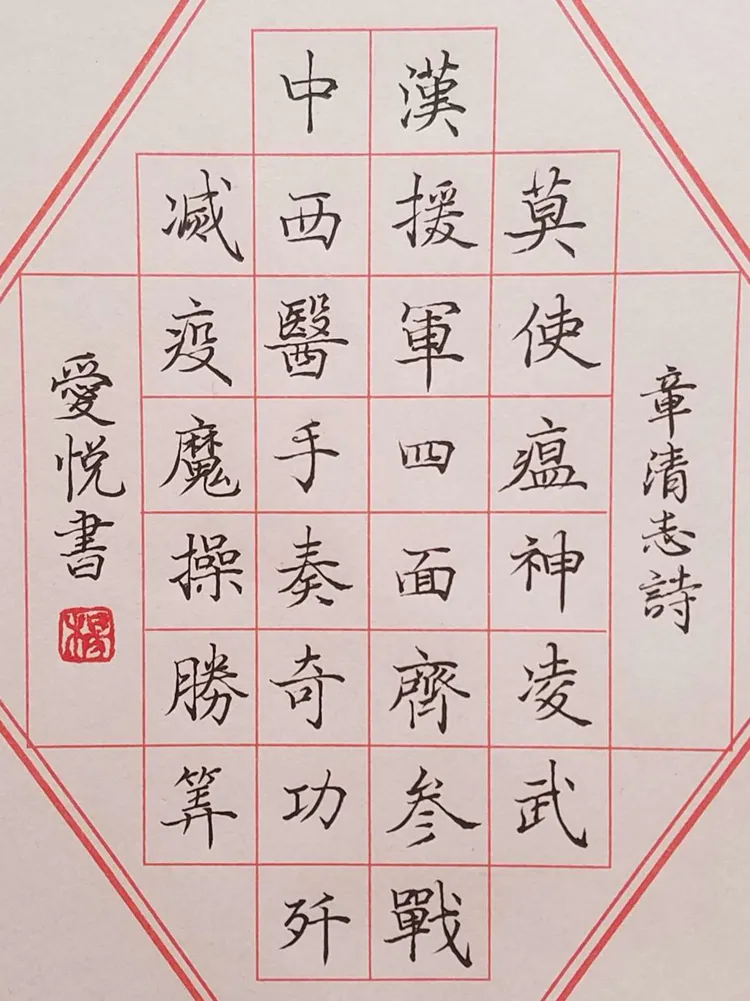 章清志詩
莫使瘟神凌武
漢援軍四面齊参戰
中西醫手奏奇功歼
滅疫魔操勝筭
愛悦書
楊